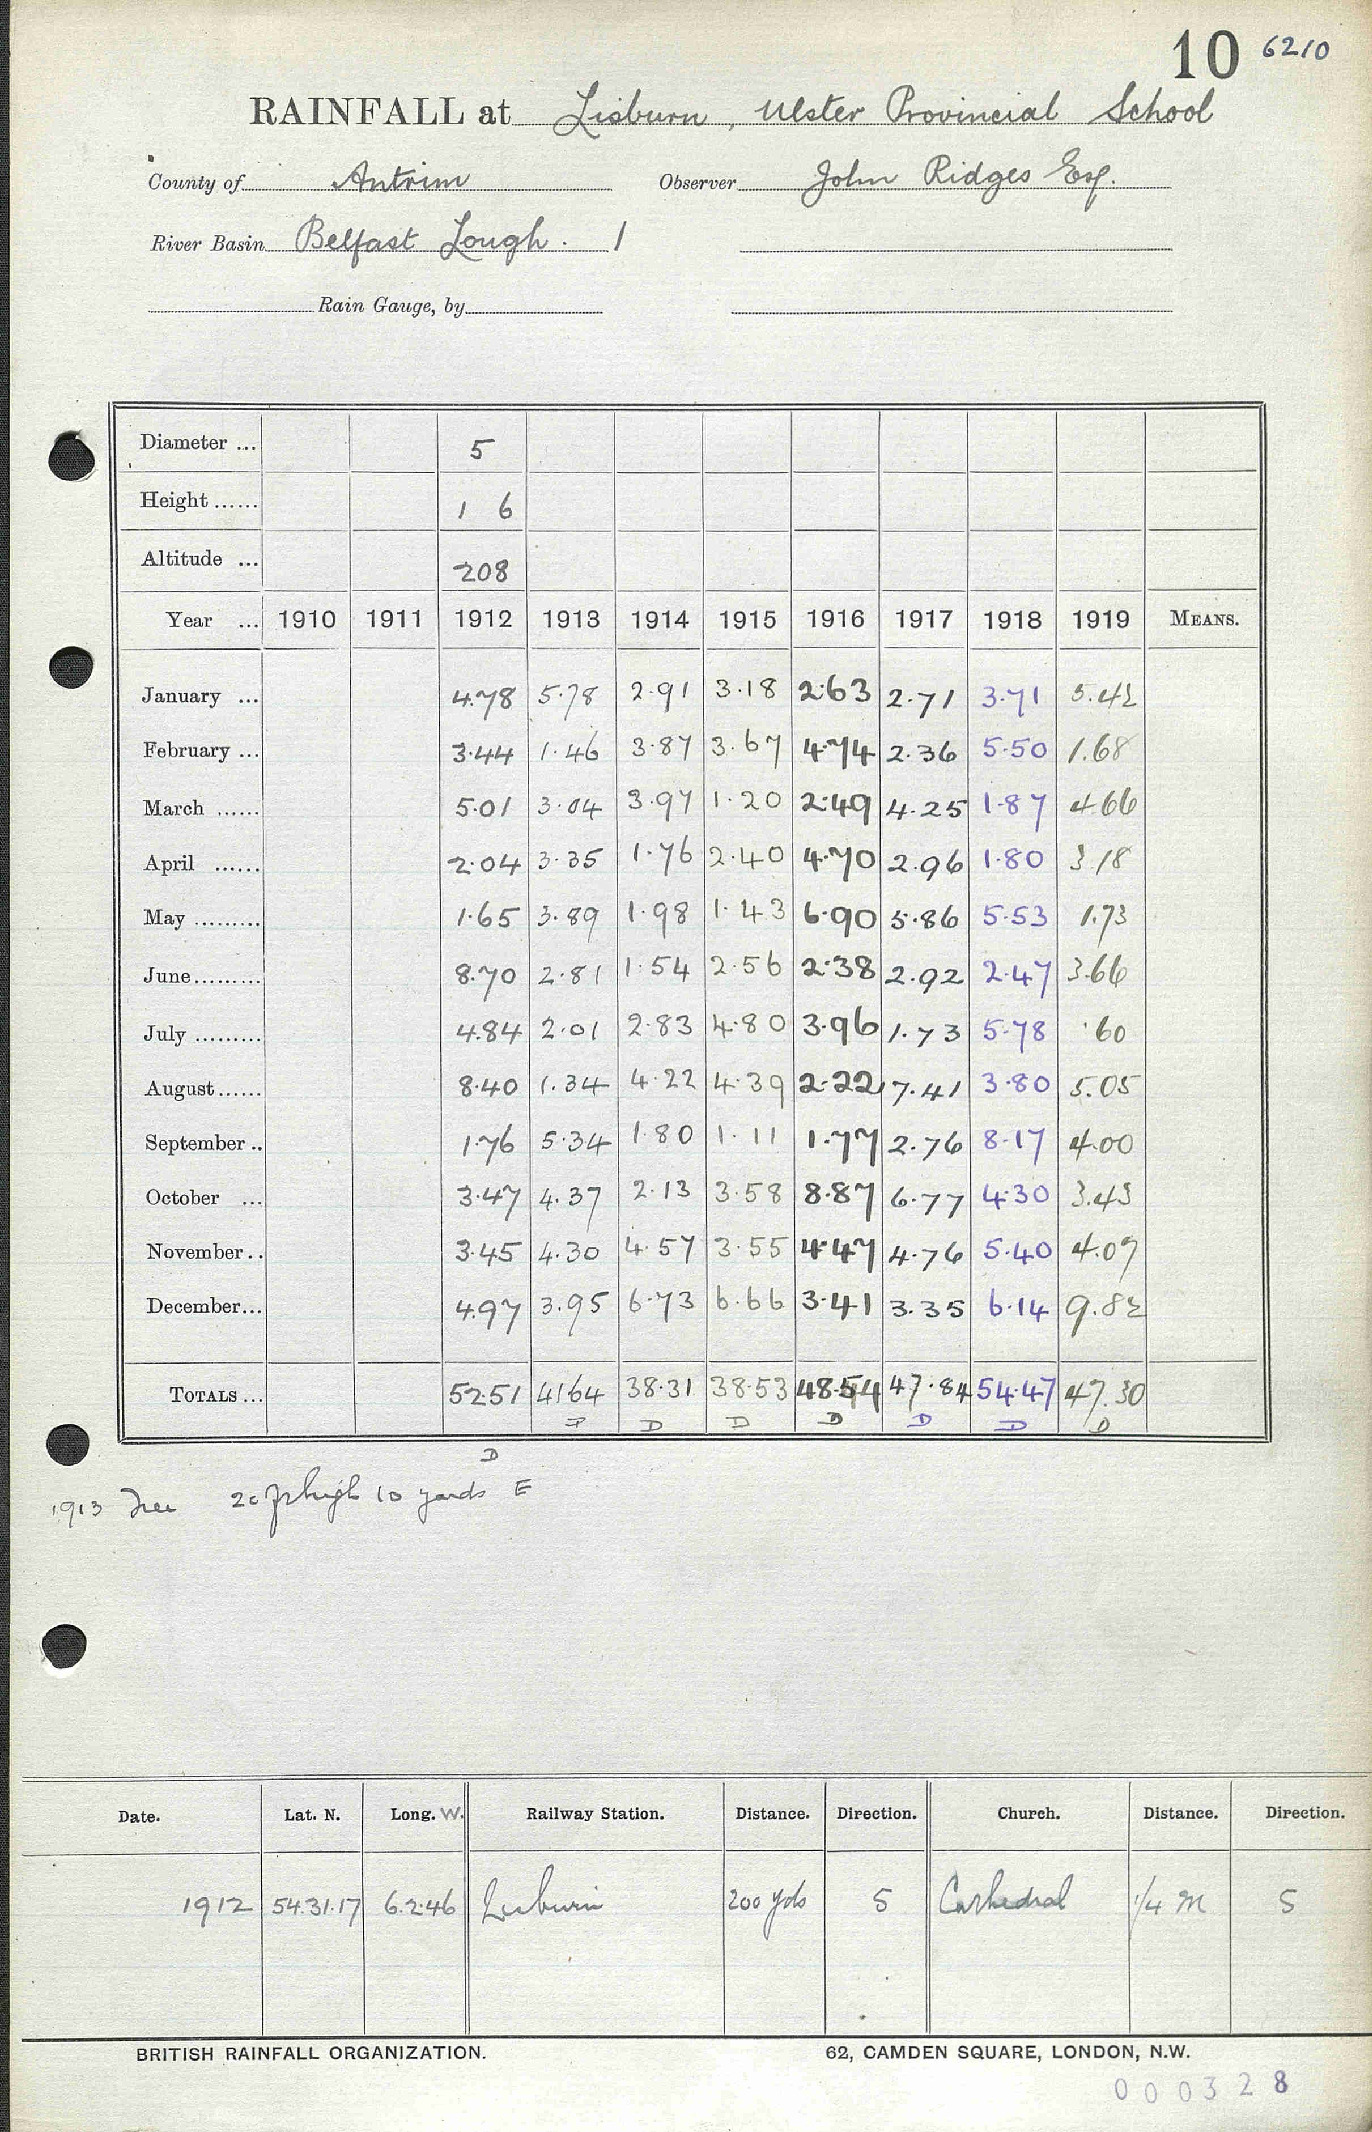 10 6210
RAINFALL at Lisburn, Ulster Provincial School
County of Antrim Observer John Ridges Esq.
River Basin Belfast Lough. 1
Rain Gauge, by
Diameter ... 5
Height ...... 1 6
Altitude ... 208
Year ... 1910 1911 1912 1913 1914 1915 1916 1917 1918 1919 MEANS.
January ... 4.78 5.78 2.91 3.18 2.63 2.71 3.71 5.42
February ... 3.44 1.46 3.87 3.67 4.74 2.36 5.50 1.68
March ...... 5.01 3.04 3.97 1.20 2.49 4.25 1.87 4.66
April ...... 2.04 3.35 1.76 2.40 4.70 2.96 1.80 3.18
May ......... 1.65 3.89 1.98 1.43 6.90 5.86 5.53 1.73
June......... 8.70 2.81 1.54 2.56 2.38 2.92 2.47 3.66
July ......... 4.84 2.01 2.83 4.80 3.96 1.73 5.78 .60
August...... 8.40 1.34 4.22 4.39 2.22 7.41 3.80 5.05
September .. 1.76 5.34 1.80 1.11 1.77 2.76 8.17 4.00
October ... 3.47 4.37 2.13 3.58 8.87 6.77 4.30 3.43
November .. 3.45 4.30 4.57 3.55 4.47 4.76 5.40 4.07
December... 4.97 3.95 6.73 6.66 3.41 3.35 6.14 9.82
TOTALS ... 52.51 41.64 38.31 38.53 48.54 47.84 54.47 47.30
D D D D D D D
D
1913 Tree 20 ft high 10 yards E
Date. Lat. N. Long. W. Railway Station. Distance. Direction. Church. Distance. Direction.
1912 54.31.17 6.2.46 Lisburn 200 yds S Cathedral 1/4 M S
BRITISH RAINFALL ORGANIZATION. 62, CAMDEN SQUARE, LONDON, N.W.
000328